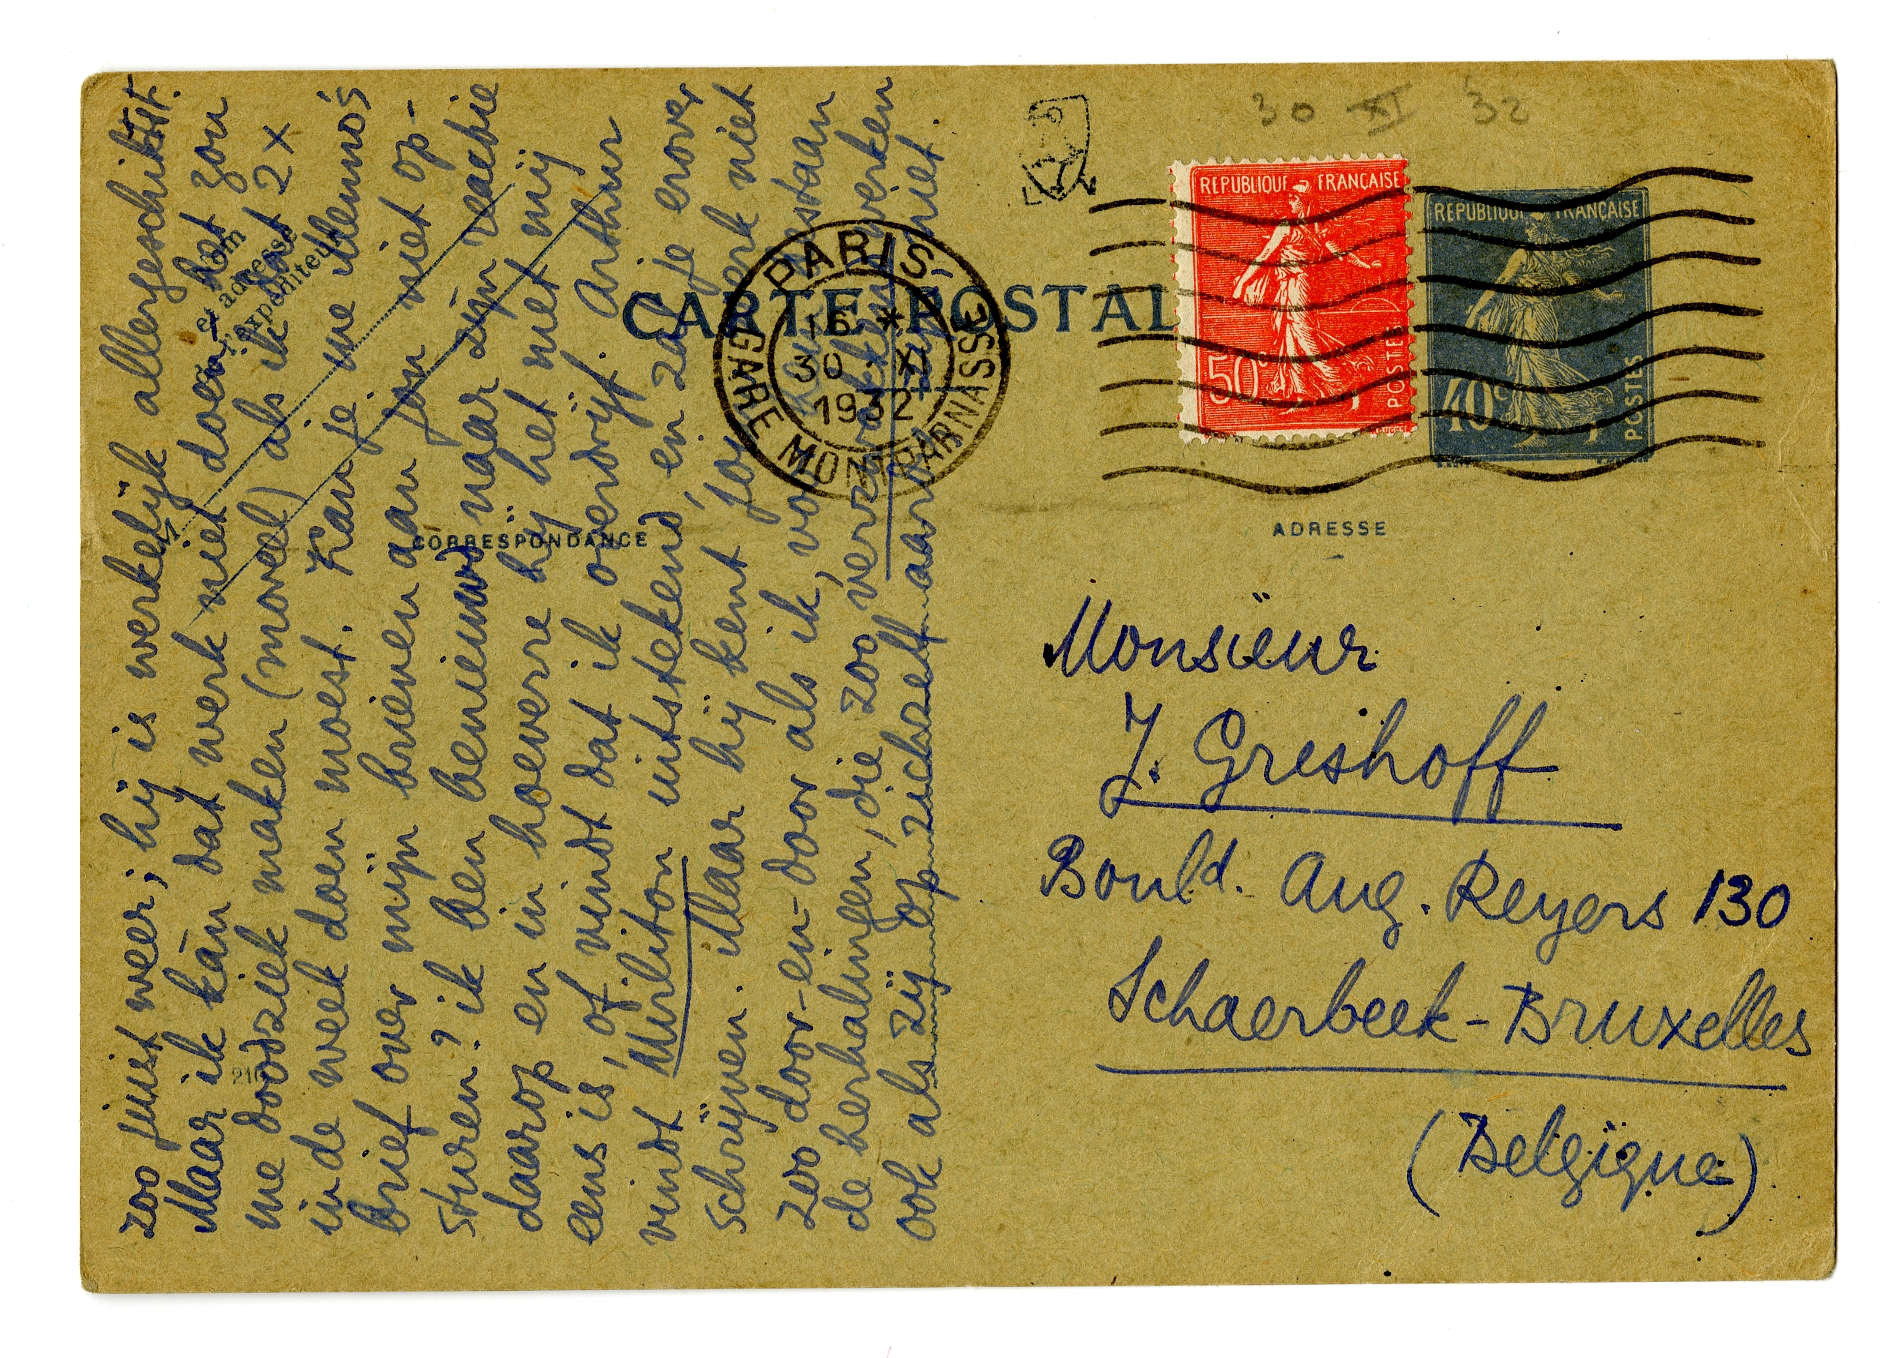 30 XI 32
REPUBLIQUE FRANÇAISE
50c
POSTES
REPUBLIQUE FRANÇAISE
40c
POSTES
PARIS
GARE MONTPARNASSE
16 *
30 XI
1932
CARTE POSTALE
Nom
et adresse
de l'expéditeur
M
CORRESPONDANCE
ADRESSE
210
zoo juist weer; hij is werkelijk allergeschiktst.
Maar ik kán dat werk niet doen; het zou
me doodziek maken (moreel) als ik dat 2 x
in de week doen moest. Kan je me Menno's
brief over mijn brieven aan jou niet op-
sturen? ik ben benieuwd naar zijn reactie
daarop en in hoeverre hij het met mij
eens is, of vindt dat ik overdrijf. Arthur
vindt Mirliton uitstekend, en zal je erover
schrijven. Maar hij kent jouw werk niet
zoo door-en-door als ik, voor
de herhalingen, die zoo verzwakkend werken
ook als zij op zichzelf aardig zijn, niet.
Monsieur
J. Greshoff
Bould. Aug. Reyers 130
Schaerbeek-Bruxelles
(Belgique)